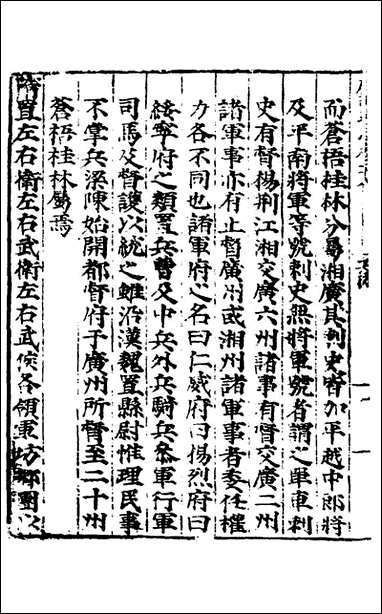 而蒼梧桂林分易湘廣其刺史皆加平越中郎將
及平南將軍等號刺史無將軍號者謂之單車刺
史有督楊荆江湘交廣六州諸事有督交廣二州
諸軍事亦有止督廣州或湘州諸軍事者委任權
力各不同也諸軍府之名曰仁威府曰惕烈府曰
綏寧府之類置兵曹又中兵外兵騎兵叅軍行軍
司馬及督護以統之雖沿漢魏置縣尉惟理民事
不掌兵梁陳始開都督府于廣州所督至二十州
蒼梧桂林屬焉
隋置左右衛左右武衛左右武候各領軍坊鄉團以